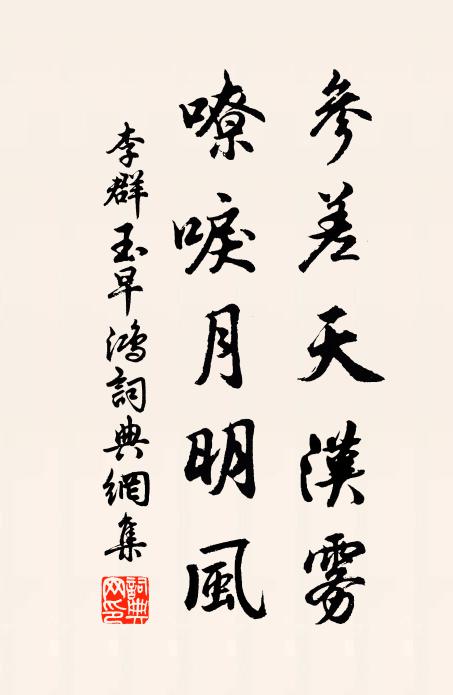 參差天漢霧
嘹唳月明風
李群玉早鴻詞典網集
詞典網印